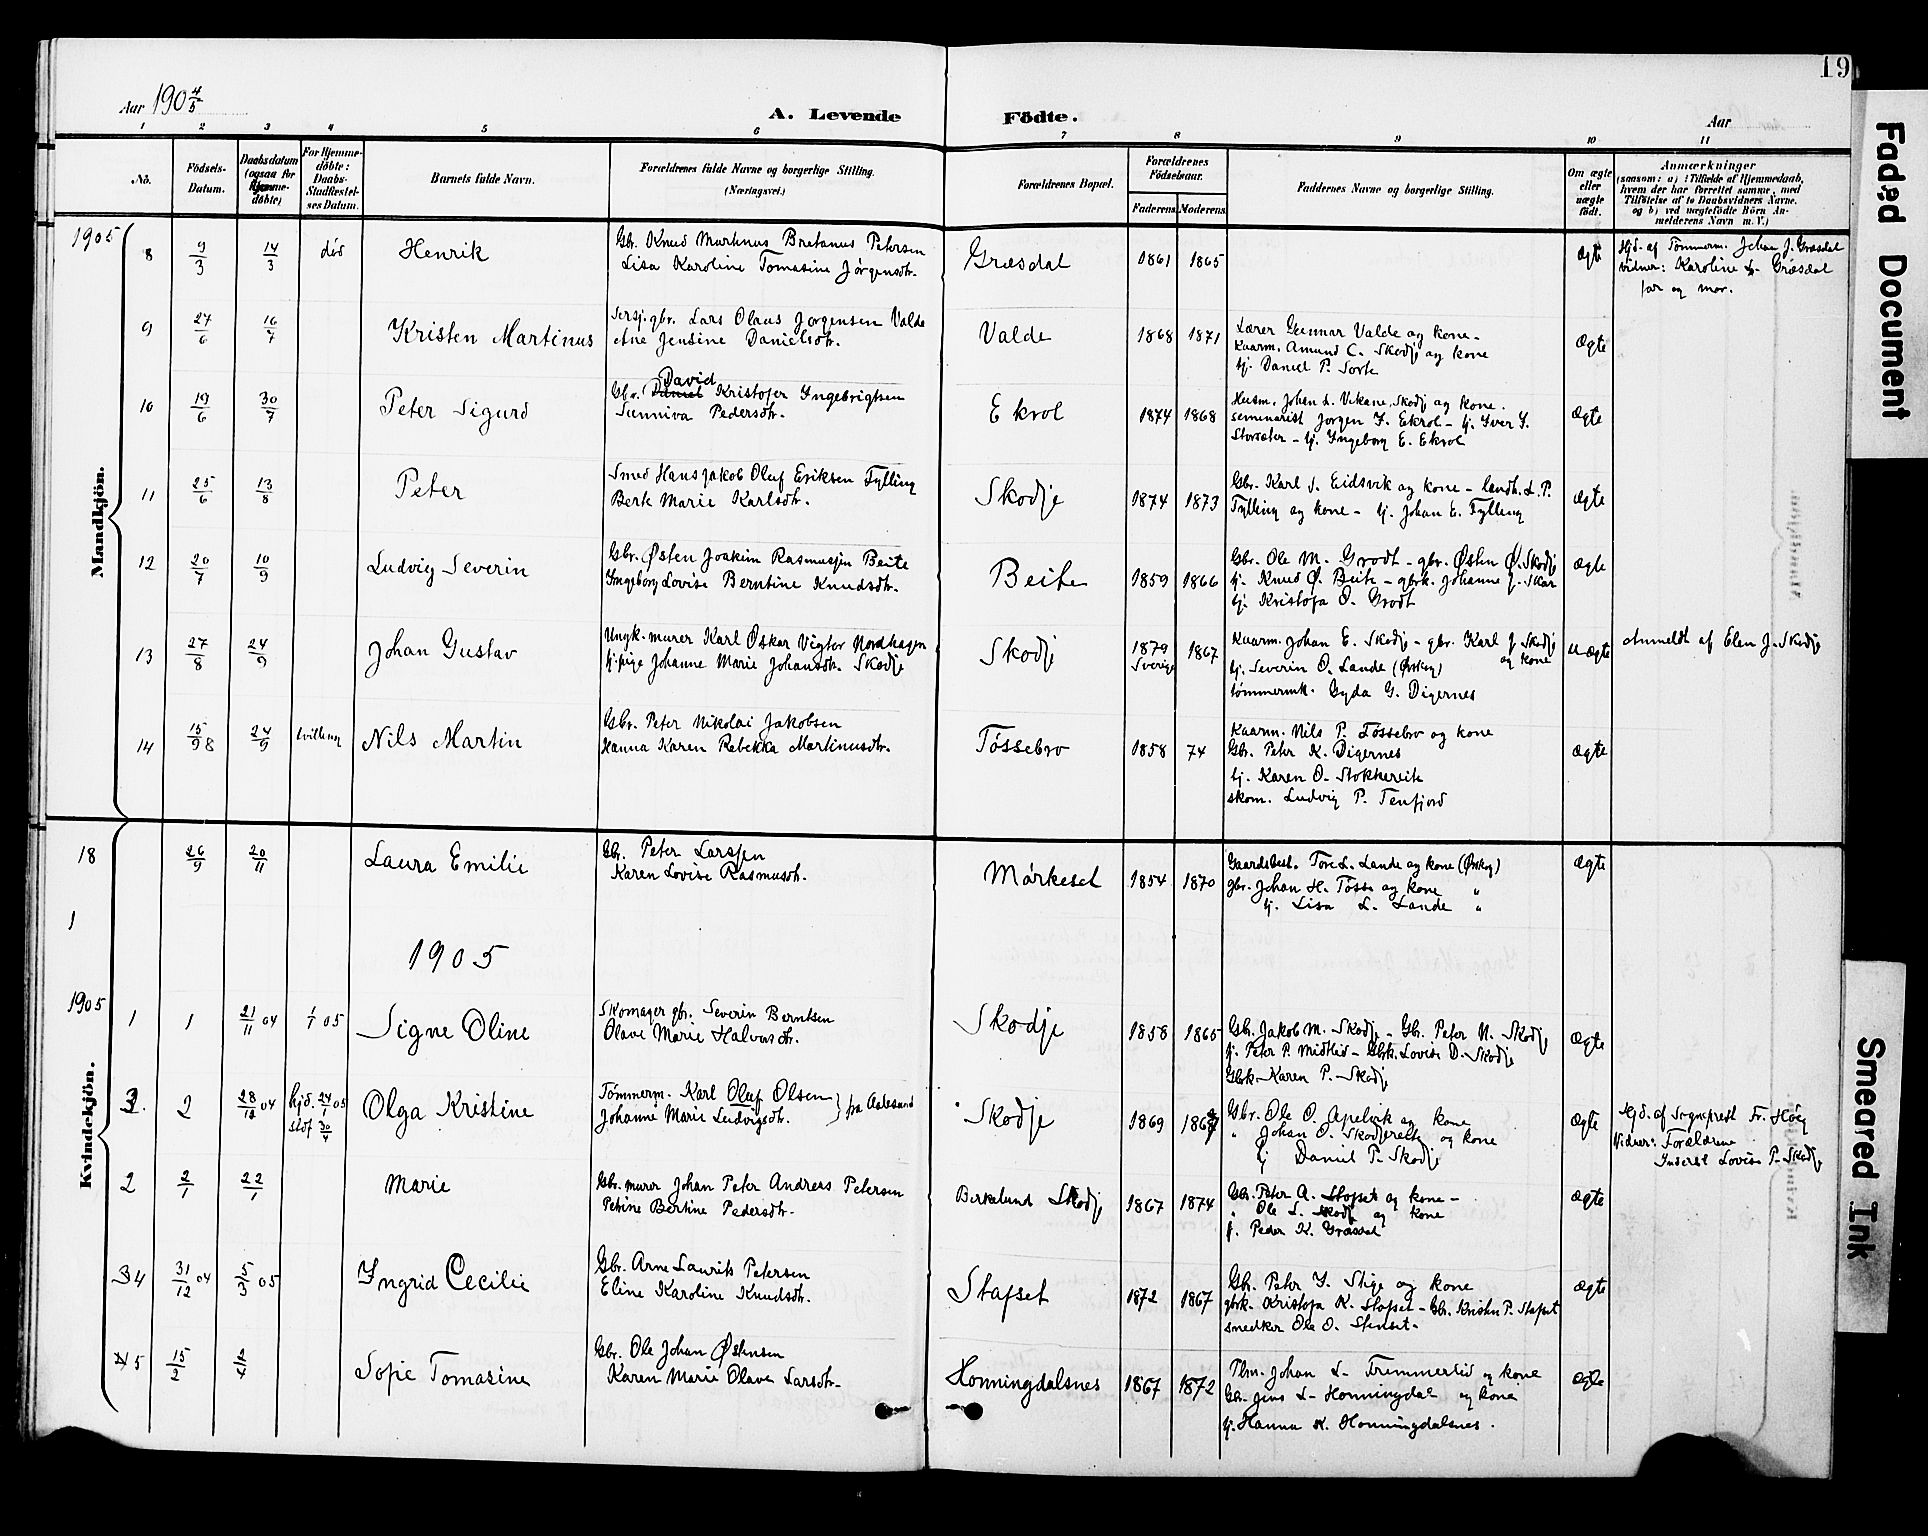 19
Aar 190 4/5
A. Levende Födte.
Aar
1 2 3 4 5 6 7 8 9 10 11
No.
Födsels-Datum.
Daabsdatum (ogsaa for Hjemme-döbte)
For Hjemme-döbte: Daabs-Stadfæstelses Datum.
Barnets fulde Navn.
Forældrenes fulde Navne og borgerlige Stilling. (Næringsvei.)
Forældrenes Bopæl.
Forældrenes Födselsaar.
Faderens Moderens
Faddernes Navne og borgerlige Stilling.
Om ægte eller uægte födt.
Anmærkninger
(saasom: a) i Tilfælde af Hjemmedaab,
hvem der har forrettet samme, med
Tilföielse af to Daabsvidners Navne.
og b) ved uægtefödte Börn An-
melderens Navn m. V.)
Mandkjön.
1905 8 9/3 14/3 död Henrik
Gbr. Knud Martinus Bretanus Petersen
Lisa Karoline Tomasine Jörgensdtr.
Græsdal 1861 1865 Ægte
Hjd. af Tömmerm. Johan J. Græsdal
vidner: Karoline L. Græsdal
far og mor.
9 27/6 16/7 Kristen Martinus
Sersj. gbr. Lars Olaus Jorgensen Valde
Ane Jensine Danielsdtr.
Valde 1868 1871
Lærer Gunnar Valde og kone -
Kaarm. Amund C. Skodje og kone
tj. Daniel P. Sorte
Ægte
10 19/6 30/7 Peter Sigurd
David
Gbr. Daniel Kristofer Ingebrigtsen
Sunniva Pedersdtr.
Ekrol 1874 1868
Husm. Johan L. Vikane, Skodj og kone.
seminarist Jorgen I. Ekrol - tj. Iver I.
Storsæter - tj. Ingeborg E. Ekrol
Ægte
11 25/6 13/8 Peter
Smed Hans Jakob Oluf Eriksen Fylling
Berte Marie Karlsdtr.
Skodje 1874 1873
Gbr. Karl S. Eidsvik og kone - landh. L. P.
Fylling og kone - tj. Johan E. Fylling
Ægte
12 20/7 10/9 Ludvig Severin
Gbr. Østen Joakim Rasmussen Beite
Ingeborg Lovise Berntine Knudsdtr.
Beite 1859 1866
Gbr. Ole M. Grodt - gbr. Østen Ø. Skodje
tj. Knud Ø. Beite - gbrk. Johanne J. Skar
tj. Kristofa O. Grodt
Ægte
13 27/8 24/9 Johan Gustav
Ungk. murer Karl Oskar Vigtor Nordhagen
tj. pige Johanne Marie Johansdtr. Skodje
Skodje 1879 Sverige 1867
Kaarm. Johan E. Skodje - gbr. Karl J. Skodje og kone
tj. Severin O. Lande (Ørskog)
tömmermk. Gyda G. Digernes
uægte
Anmeldt af Elen J. Skodje
14 15/9 8 24/9 tvilling Nils Martin
Gbr. Peter Nikolai Jakobsen
Hanna Karen Rebekka Martinusdtr.
Tössebro 1858 74
Kaarm. Nils P. Tössebro og kone
Gbr. Peter K. Digernes
tj. Karen O. Stokkereite
skom. Ludvig P. Tenfjord
Ægte
Kvindekjön.
18 26/9 20/11 Laura Emilie
Gbr. Peter Larssen
Karen Lovise Rasmusdtr.
Mörkeset 1854 1870
Gaardsbest. Tore L. Lande og kone (Ørskog)
gbr. Johan H. Tösse og kone "
tj. Lisa L. Lande "
Ægte
1
1905
1905 1 1 21/11 04 1/1 05 Signe Oline
Skomager gbr. Severin Berntsen
Olave Marie Halvorsdtr.
Skodje 1858 1865
Gbr. Jakob M. Skodje - Gbr. Peter N. Skodje
tj. Peter P. Midtlid - Gbrk. Lovise D. Skodje
Gbrk. Karen P. Skodje
Ægte
3. 2 28/12 04 hjd. 24/1 05 stdf 30/4 Olga Kristine
Tömmerm. Karl Oluf Olsen
Johanne Marie Ludvigsdtr. } fra Aalesund
Skodje 1869 1867
Gbr. Ole O. Apelvik og kone
" Johan O. Skodjereite og kone
tj Daniel P. Skodje
Ægte
Hjd. af Sogneprest Fr. Höeg
Vidner: Forældrene
Inderst Lovise P. Skodje
2 2/1 22/1 Marie
Gbr. murer Johan Peter Andreas Petersen
Petrine Bertine Pedersdtr.
Berkelund Skodje 1867 1874
Gbr. Peter A. Stapset og kone -
" Ole L. Skodje og kone
tj. Peder K. Græsdal
Ægte
3 4 31/12 04 5/3 05 Ingrid Cecilie
Gbr. Arne Laurits Petersen
Eline Karoline Knudsdtr.
Stapset 1872 1867
Gbr. Peter I. Stige og kone
gbrk. Kristofa K. Stapset - Gbr. Kristen P. Stapset
snedker Ole O. Stenset.
Ægte
4 5 15/2 2/4 Sofie Tomasine
Gbr. Ole Johan Østensen
Karen Marie Olave Larsdtr.
Honningdalsnes 1867 1872
Tlm. Johan L. Fremmerlid og kone
Gbr. Jens L. Honningdal og kone
tj. Hanna K. Honningdalsnes.
Ægte
Faded Document
Smeared Ink